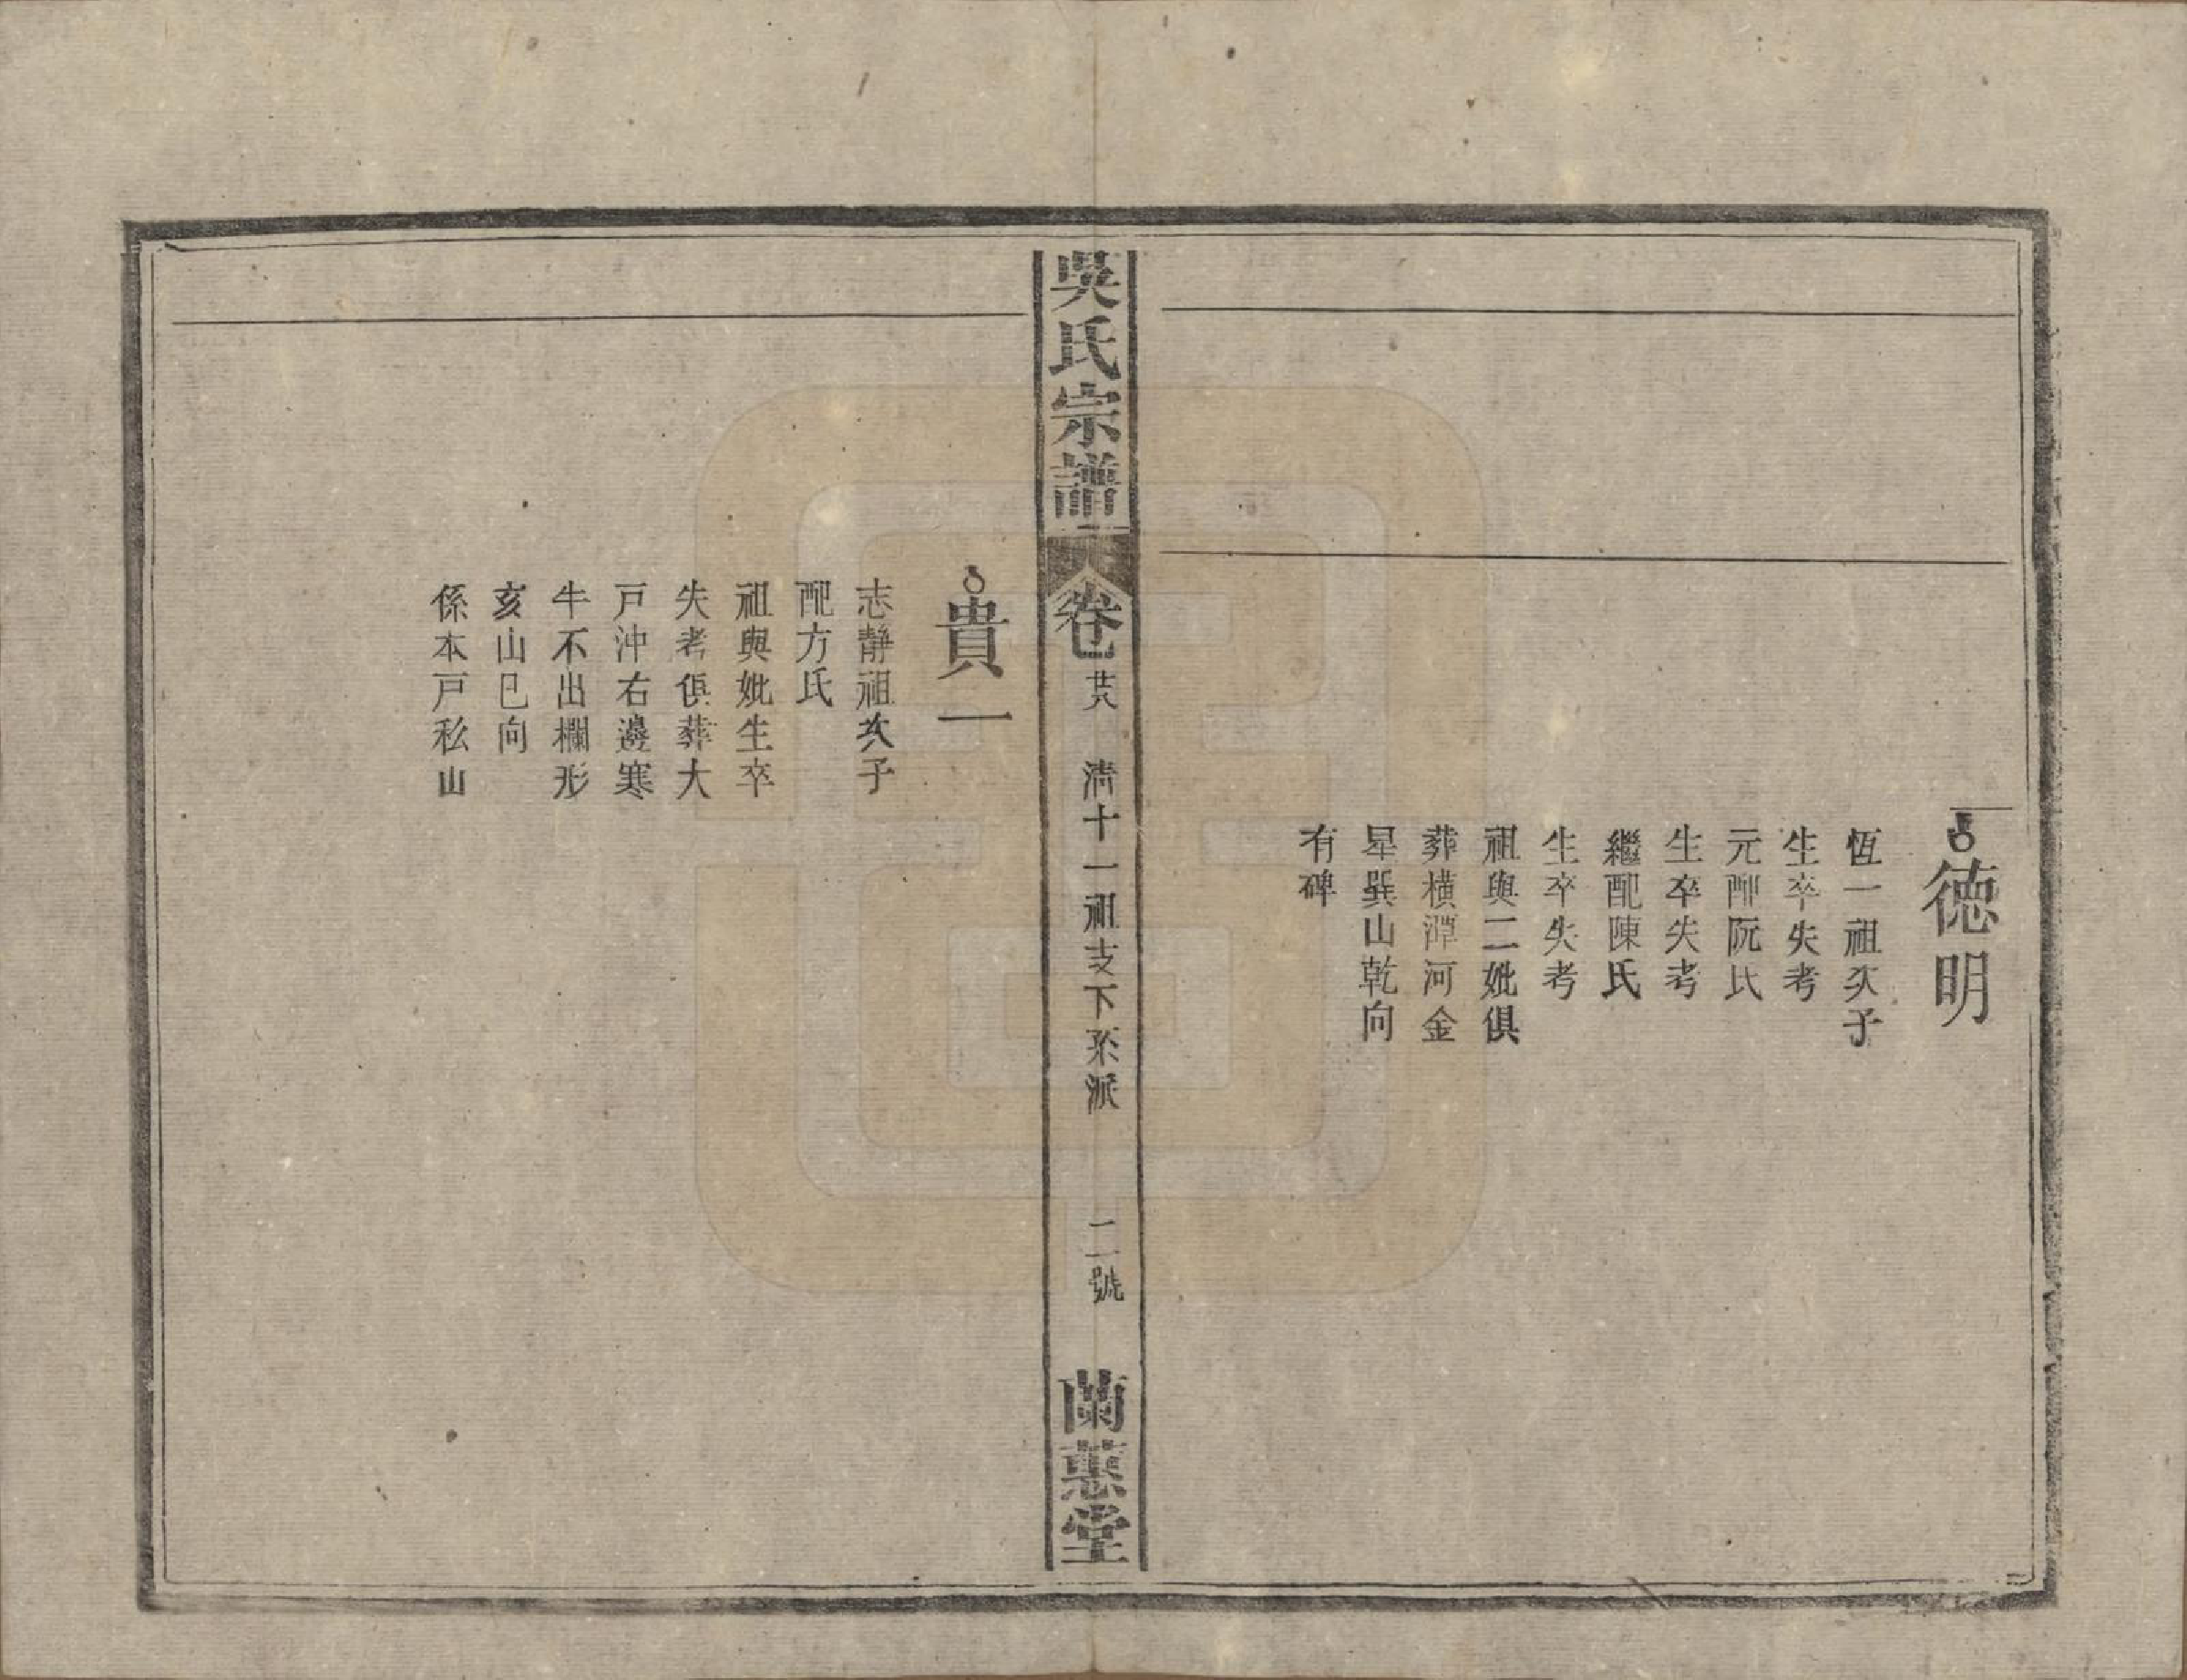 德明
恆一祖次子
生卒失考
元配阮氏
生卒失考
繼配陳氏
生卒失考
祖與二妣俱
葬橫潭河金
星巽山乾向
有碑
吳氏宗譜
卷七
廿八
清十一祖支下系派
二號
蘭蕙堂
貴一
志靜祖次子
配方氏
祖與妣生卒
失考俱葬大
戸沖右邊寒
牛不出欄形
亥山巳向
係本戸私山